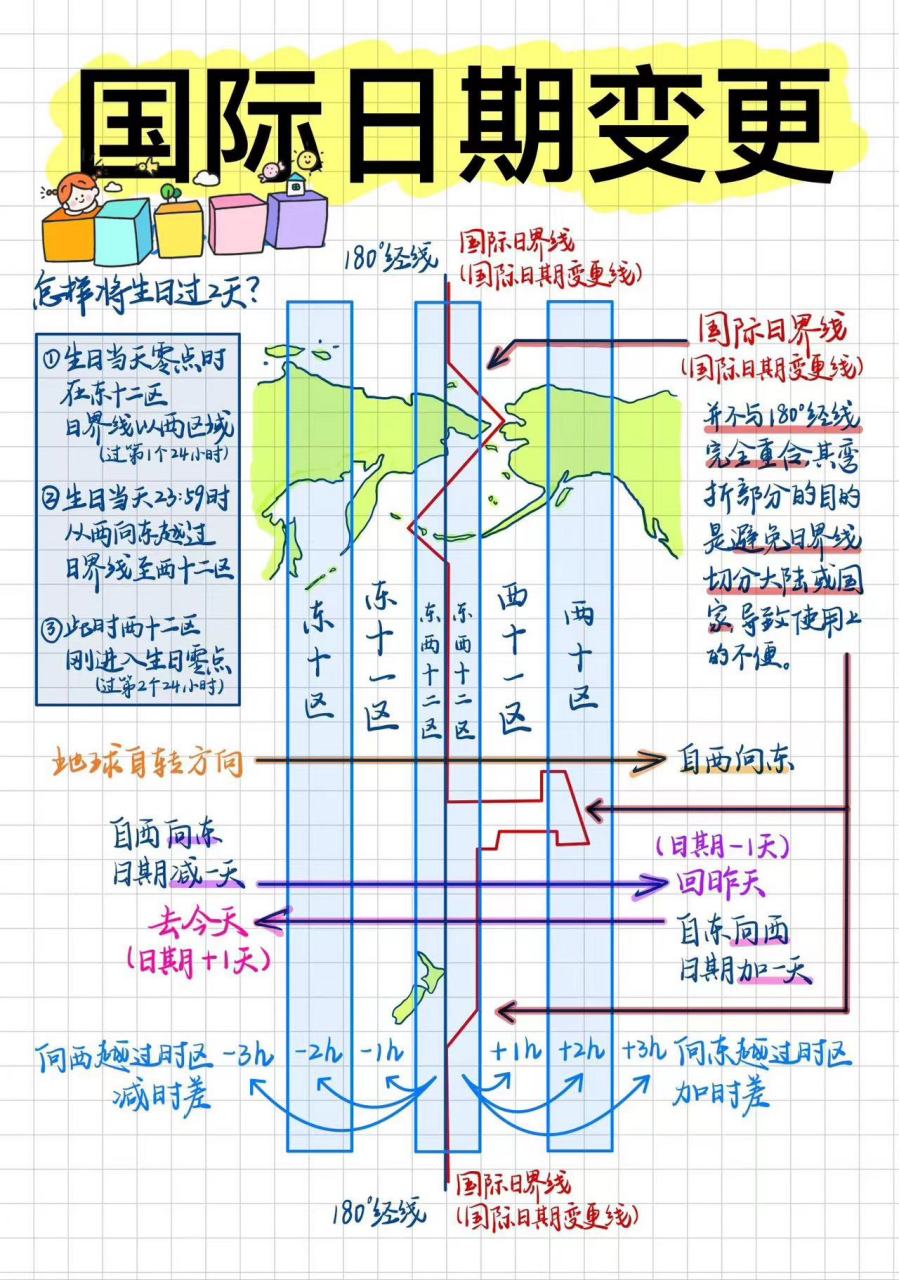 国际日期变更
180°经线
国际日界线
(国际日期变更线)
怎样将生日过2天?
①生日当天零点时
在东十二区
日界线以西区域
(过第1个24小时)
②生日当天23:59时
从西向东越过
日界线至西十二区
③此时西十二区
刚进入生日零点
(过第2个24小时)
国际日界线
(国际日期变更线)
并不与180°经线
完全重合,其弯
折部分的目的
是避免日界线
切分大陆或国
家,导致使用上
的不便。
东十区
东十一区
东西十二区
东西十二区
西十一区
西十区
地球自转方向
自西向东
自西向东
日期减一天
(日期-1天)
回昨天
去今天
(日期+1天)
自东向西
日期加一天
向西越过时区
减时差
-3h
-2h
-1h
+1h
+2h
+3h
向东越过时区
加时差
180°经线
国际日界线
(国际日期变更线)